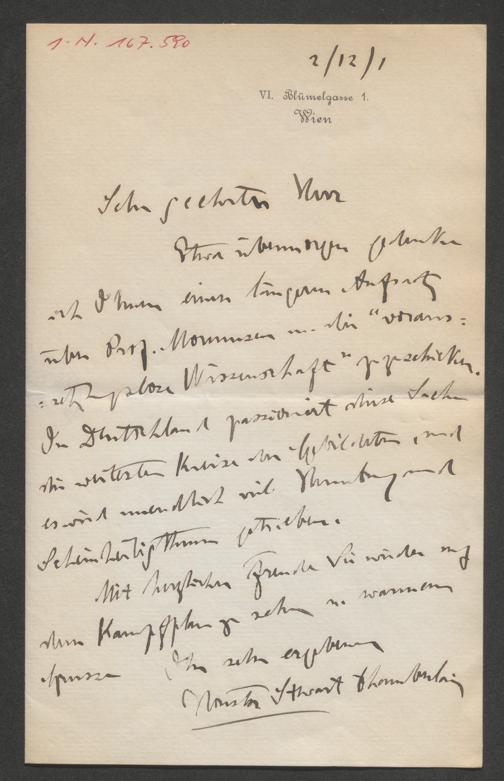 I.N. 167.590
2/12/1
VI. Blümelgasse 1.
Wien
Sehr geehrter Herr
Etwa übermorgen gedenke
ich Ihnen einen längeren Aufsatz
über Prof. Mommsen u. die "voraus=
=setzungslose Wissenschaft" zu schicken.
In Deutschland passioniert diese Sache
die weitesten Kreise der Gebildeten, und
es wird unendlich viel Humbug und
Scheinheiligthum getrieben.
Mit herzlicher Freude Sie wieder auf
dem Kampfplan zu sehen u. warmem
Grusse Ihr sehr ergebener
Houston Stewart Chamberlain